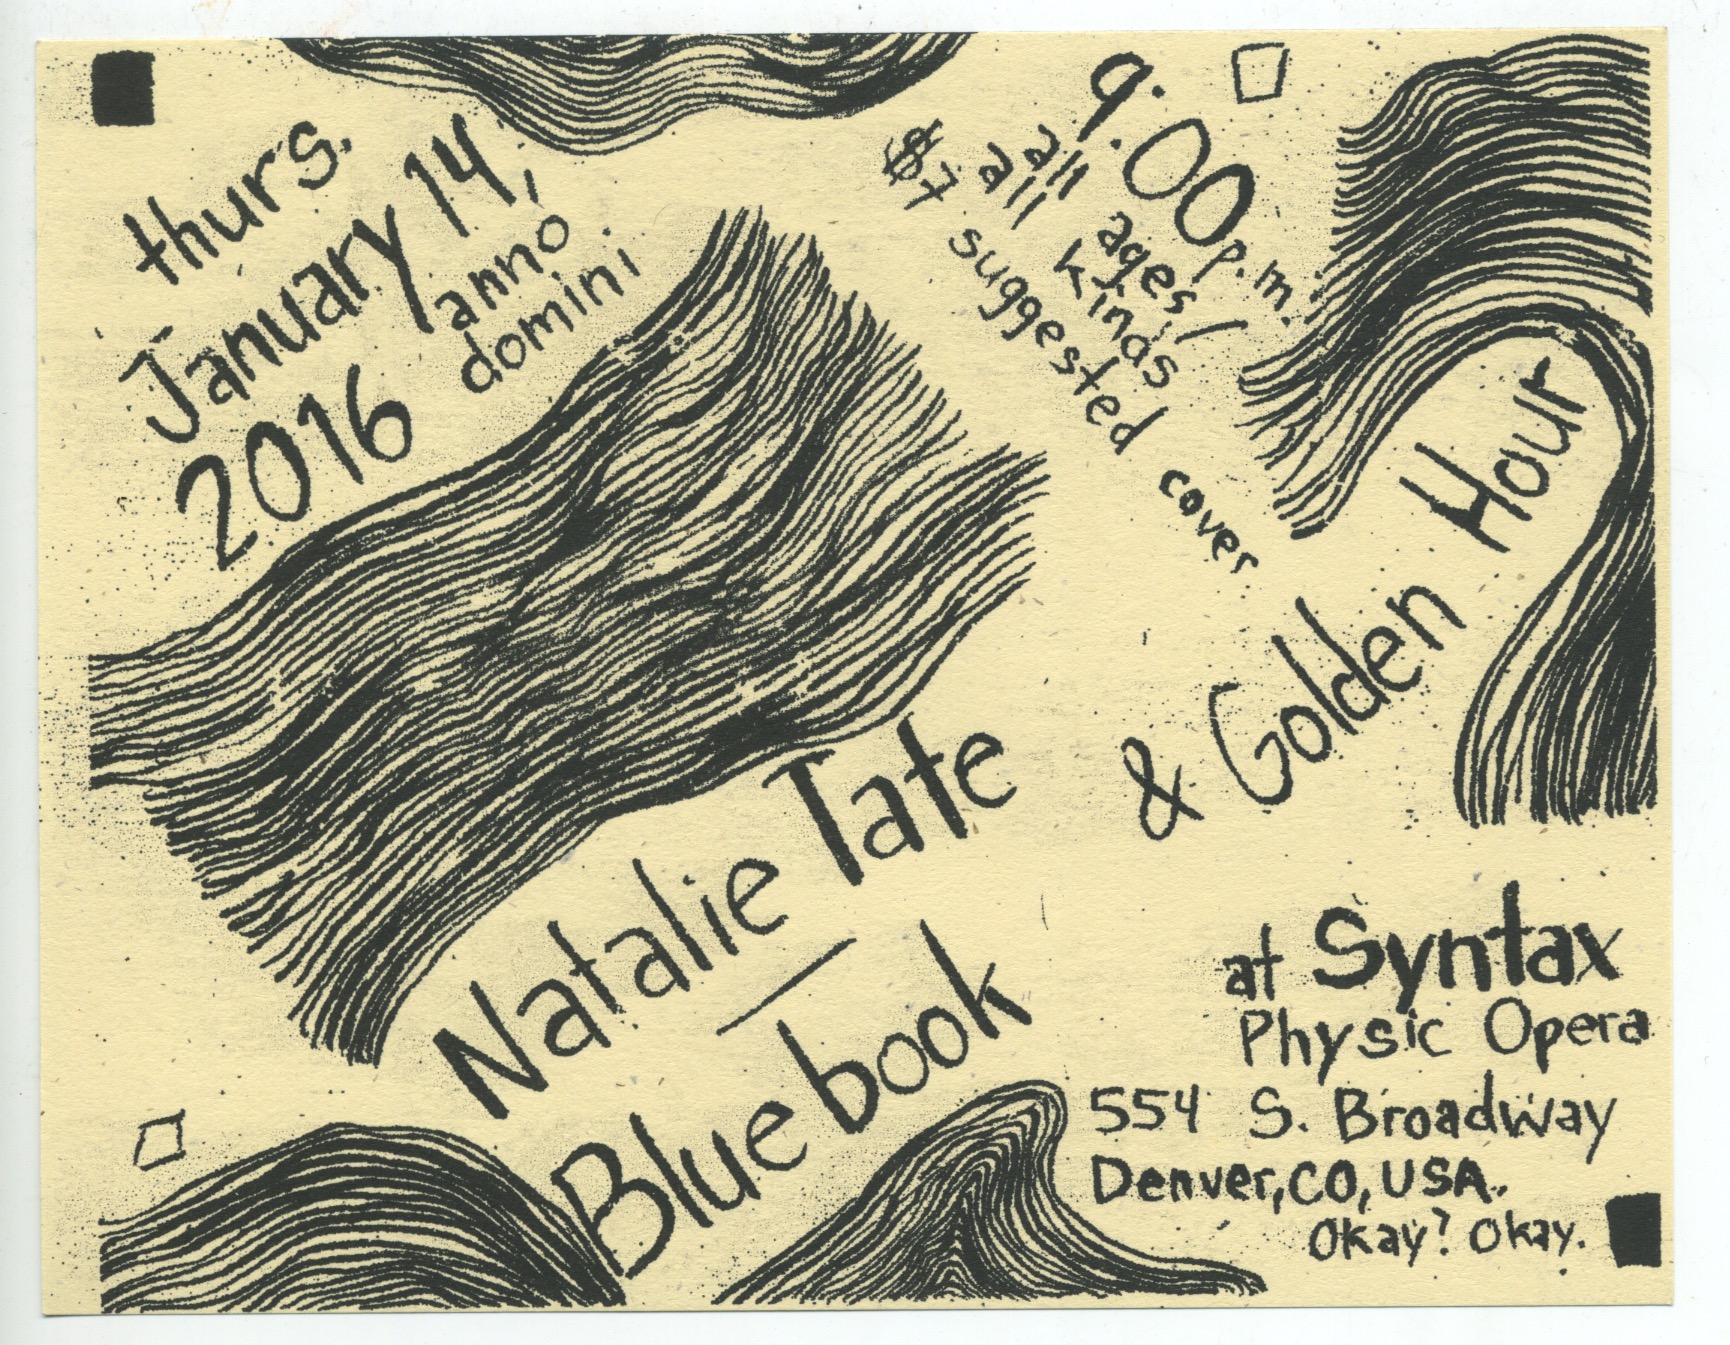 thurs.
January 14,
2016
anno
domini
9:00 p.m.
all ages/
all kinds
$7 suggested cover
Natalie Tate
Blue book
& Golden Hour
at Syntax
Physic Opera
554 S. Broadway
Denver, CO, USA.
Okay? Okay.